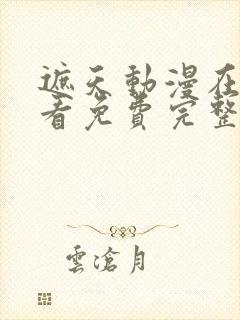 遮天動漫在
看免費完整
雲滄月